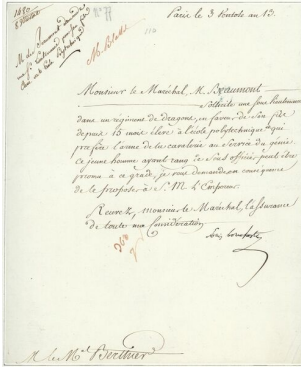 Paris le 3 Ventose an 13.
M. Blatte
Monsieur le Maréchal, M. Beaumont
Sollicite une sous Lieutenance
dans un régiment de dragons, en faveur de son fils
depuis 15 mois élève à l'école polytechnique qui
préfère l'arme de la cavalerie au service du génie
Ce jeune homme ayant rang de Sous officier, peut être
promu à ce grade, je vous demande en conséquence
de le proposer à S. M. L'Empereur.
Recevez, monsieur le Maréchal, l'assurance
de toute ma Considération
M. le Mal Berthier